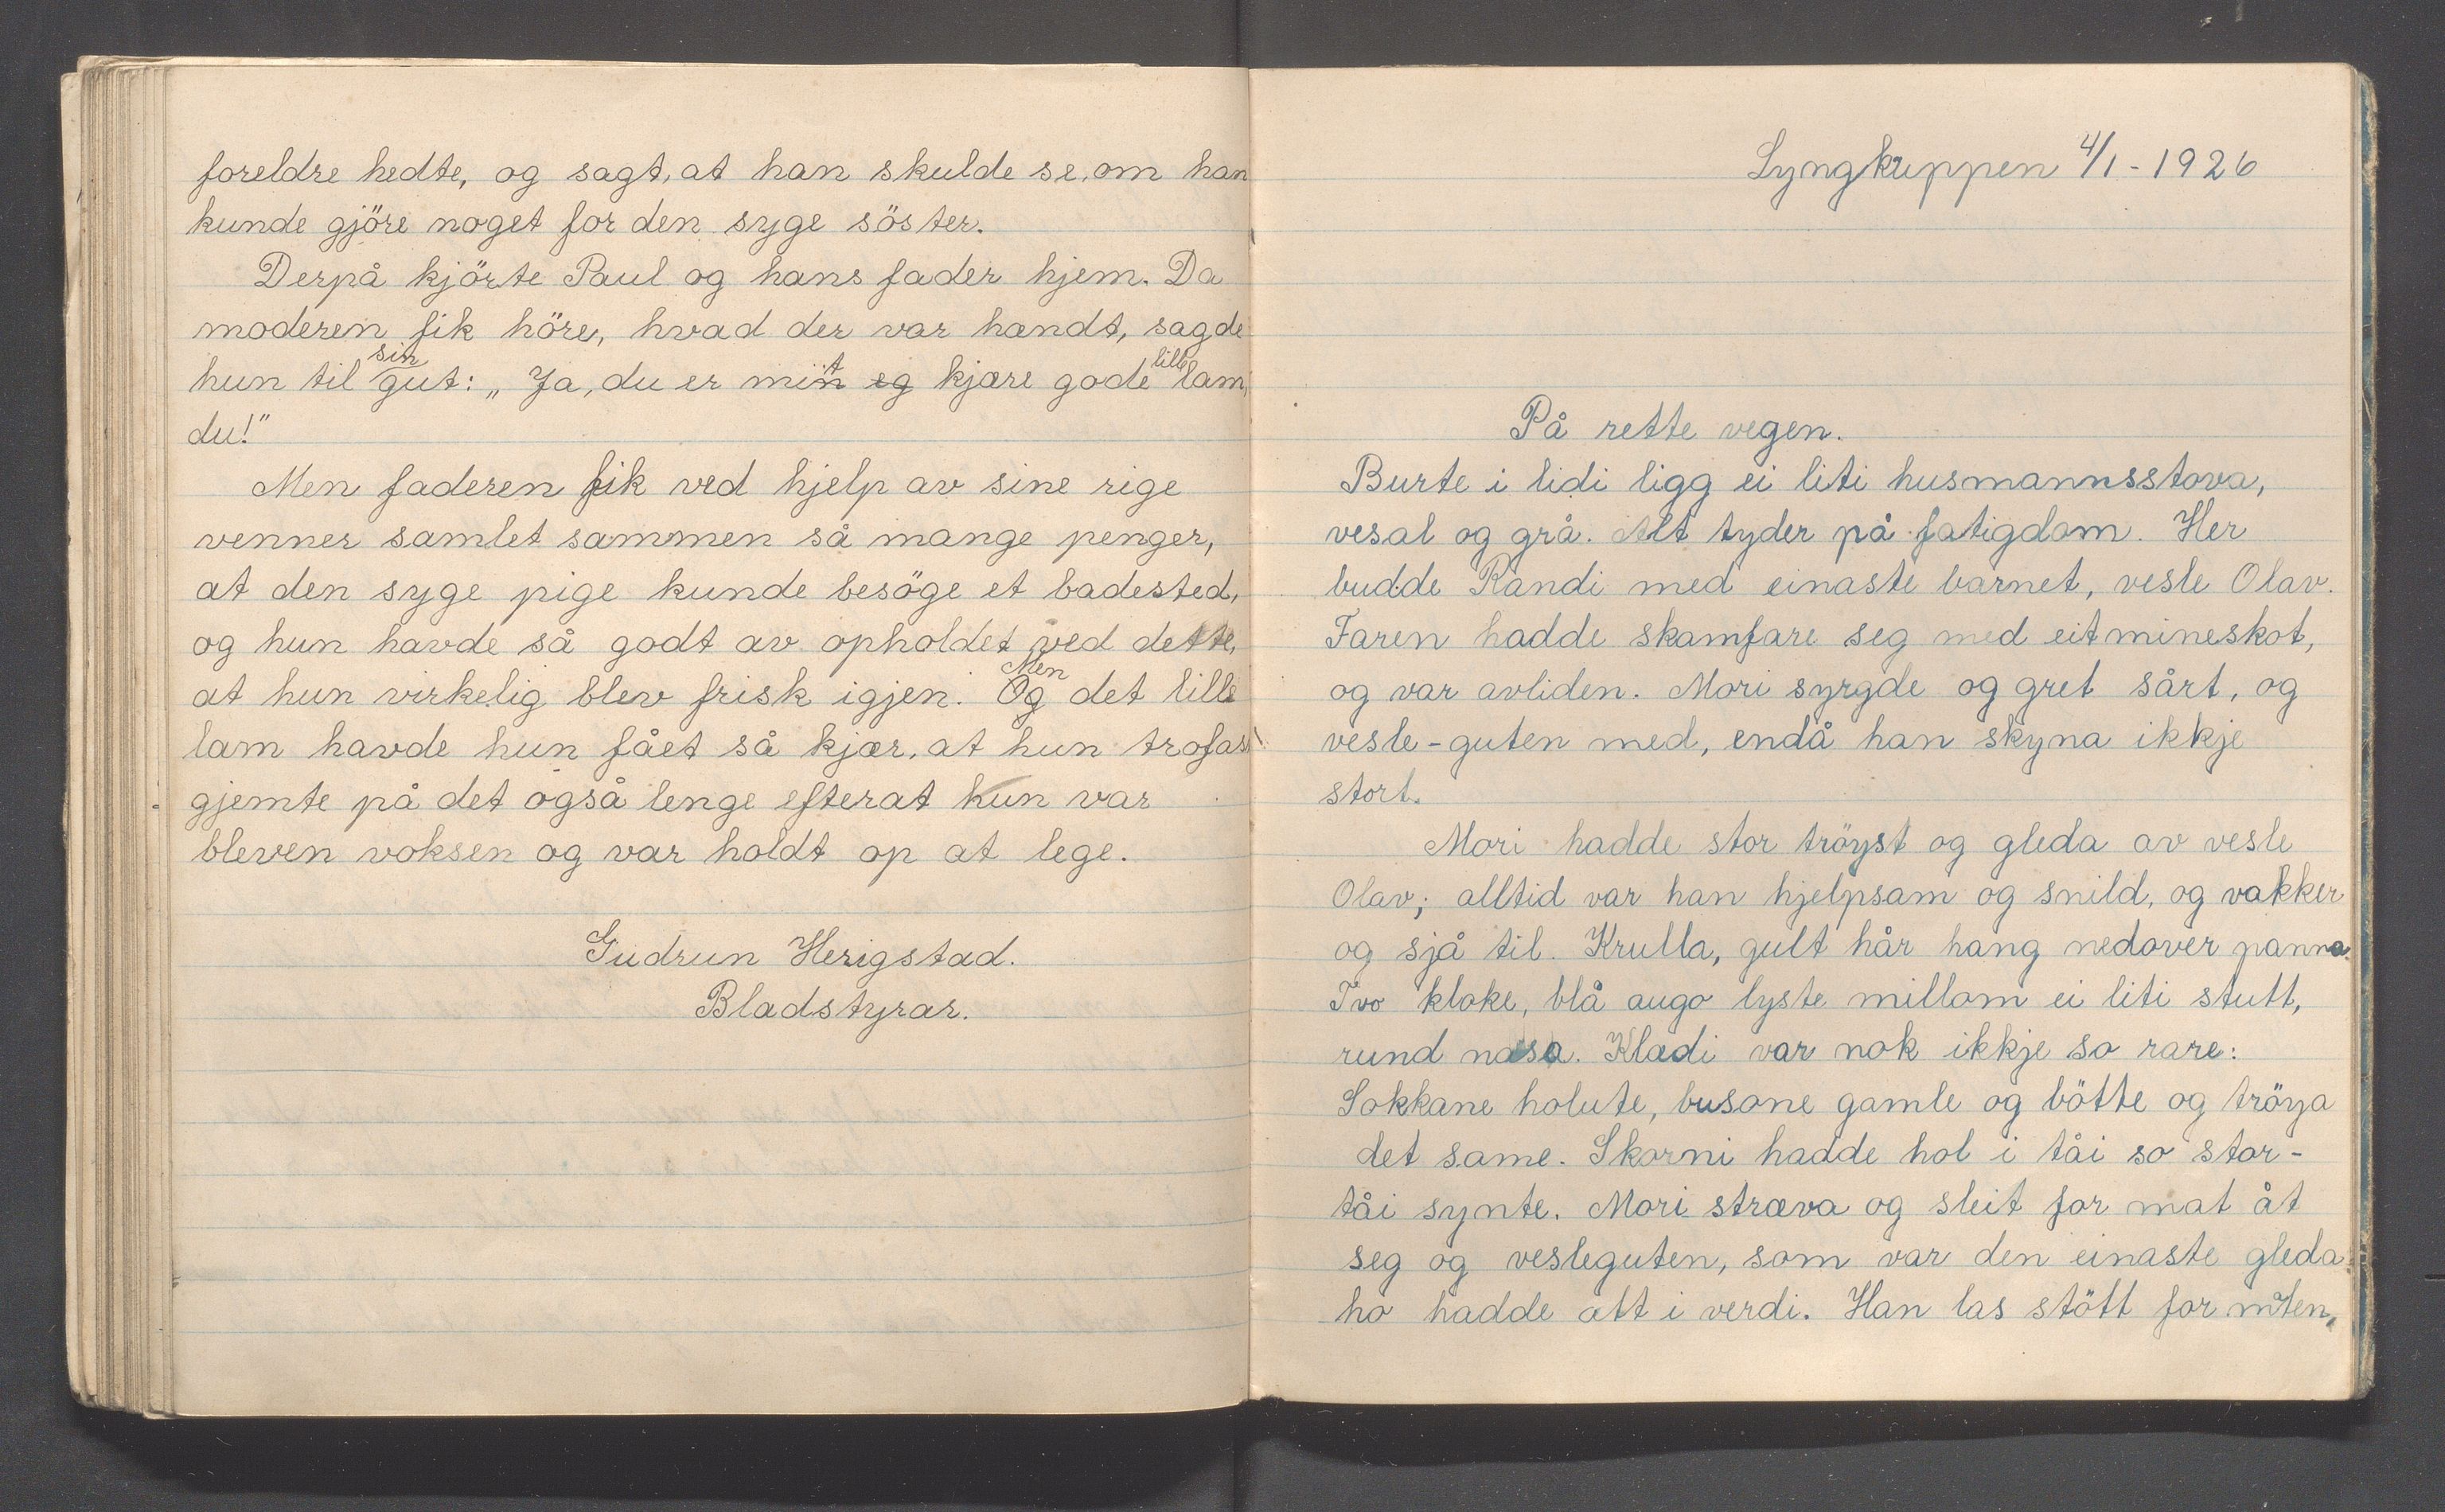 foreldre hedte, og sagt, at han skulde se, om han
kunde gjöre noget for den syge söster.
Derpå kjörte Paul og hans fader hjem. Da
moderen fik höre, hvad der var hændt, sagde
hun til sin gut: „Ja, du er mit eg kjære gode lille lam,
du!"
Men faderen fik ved hjelp av sine rige
venner samlet sammen så mange penger,
at den syge pige kunde besöge et badested,
og hun havde så godt av opholdet ved dette,
at hun virkelig blev frisk igjen. Og Men det lille
lam havde hun fået så kjær, at hun trofast
gjemte på det også lenge efterat hun var
bleven voksen og var holdt op at lege.
Gudrun Herigstad.
Bladstyrar.
Lyngkruppen 4/1-1926
På rette vegen.
Burte i lidi ligg ei liti husmannsstova,
vesal og grå. Alt tyder på fatigdom. Her
budde Randi med einaste barnet, vesle Olav.
Faren hadde skamfare seg med eit mineskot,
og var avliden. Mori syrgde og gret sårt, og
vesle-guten med, endå han skyna ikkje
stort.
Mori hadde stor tröyst og gleda av vesle
Olav; alltid var han hjelpsam og snild, og vakker
og sjå til. Krulla, gult hår hang nedover panna.
Tvo kloke, blå augo lyste millom ei liti stutt,
rund nasa. Klædi var nok ikkje so rare:
Sokkane holute, busone gamle og bötte og tröya
det same. Skorni hadde hol i tåi so stor-
tåi synte. Mori stræva og sleit for mat åt
seg og vesleguten, som var den einaste gleda
ho hadde att i verdi. Han las stött for